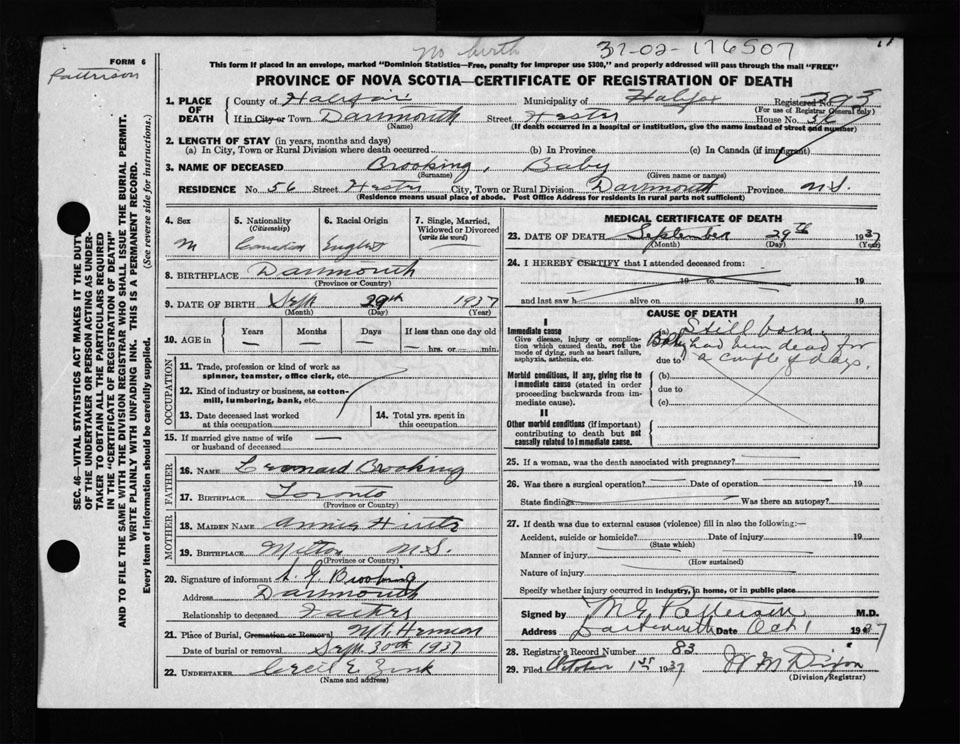 No birth 37-02-176507
FORM 6
Patterson
This form if placed in an envelope, marked "Dominion Statistics—Free, penalty for improper use $300," and properly addressed will pass through the mail "FREE"
PROVINCE OF NOVA SCOTIA—CERTIFICATE OF REGISTRATION OF DEATH
SEC. 46—VITAL STATISTICS ACT MAKES IT THE DUTY
OF THE UNDERTAKER OR PERSON ACTING AS UNDER-
TAKER TO OBTAIN ALL THE PARTICULARS REQUIRED
IN THE "CERTIFICATE OF REGISTRATION OF DEATH"
AND TO FILE THE SAME WITH THE DIVISION REGISTRAR WHO SHALL ISSUE THE BURIAL PERMIT.
WRITE PLAINLY WITH UNFADING INK. THIS IS A PERMANENT RECORD.
Every item of information should be carefully supplied. (See reverse side for instructions.)
1. PLACE OF DEATH County of Halifax Municipality of Halifax Registered No. 393
(For use of Registrar General only)
If in City or Town Dartmouth Street Hester House No.
(Name) (If death occurred in a hospital or institution, give the name instead of street and number)
2. LENGTH OF STAY (in years, months and days)
(a) In City, Town or Rural Division where death occurred (b) In Province (c) In Canada (if immigrant)
3. NAME OF DECEASED Brooking, Baby
(Surname) (Given name or names)
RESIDENCE No. 56 Street Hester City, Town or Rural Division Dartmouth Province N.S.
(Residence means usual place of abode. Post Office Address for residents in rural parts not sufficient)
4. Sex 5. Nationality (Citizenship) 6. Racial Origin 7. Single, Married, Widowed or Divorced (write the word)
M Canadian English
8. BIRTHPLACE Dartmouth
(Province or Country)
9. DATE OF BIRTH Sept 29th 1937
(Month) (Day) (Year)
10. AGE in Years Months Days If less than one day old
hrs. or min.
OCCUPATION
11. Trade, profession or kind of work as spinner, teamster, office clerk, etc.
12. Kind of industry or business, as cotton-mill, lumbering, bank, etc.
13. Date deceased last worked at this occupation 14. Total yrs. spent in this occupation
15. If married give name of wife or husband of deceased
FATHER
16. NAME Leonard Brooking
17. BIRTHPLACE Toronto
(Province or Country)
MOTHER
18. MAIDEN NAME Annie
19. BIRTHPLACE Milton N.S.
(Province or Country)
20. Signature of informant L. J. Brooking
Address Dartmouth
Relationship to deceased Father
21. Place of Burial, Cremation or Removal Mt. Hermon
Date of burial or removal Sept. 30th 1937
22. UNDERTAKER Cecil E. Zink
(Name and address)
MEDICAL CERTIFICATE OF DEATH
23. DATE OF DEATH September 29th 1937
(Month) (Day) (Year)
24. I HEREBY CERTIFY that I attended deceased from:
19 to 19
and last saw h alive on 19
CAUSE OF DEATH
I
Immediate cause (a) Still born.
Give disease, injury or complication which caused death, not the mode of dying, such as heart failure, asphyxia, asthenia, etc.
Baby had been dead for
due to a couple of days.
Morbid conditions, if any, giving rise to immediate cause (stated in order proceeding backwards from immediate cause). (b)
due to
(c)
II
Other morbid conditions (if important) contributing to death but not causally related to immediate cause.
25. If a woman, was the death associated with pregnancy?
26. Was there a surgical operation? Date of operation 19
State findings Was there an autopsy?
27. If death was due to external causes (violence) fill in also the following:—
Accident, suicide or homicide? Date of injury 19
(State which)
Manner of injury
(How sustained)
Nature of injury
Specify whether injury occurred in industry, in home, or in public place
Signed by M G Patterson M.D.
Address Dartmouth Date Oct 1 1937
28. Registrar's Record Number 83
29. Filed October 1st 1937 W M Dixon
(Division Registrar)